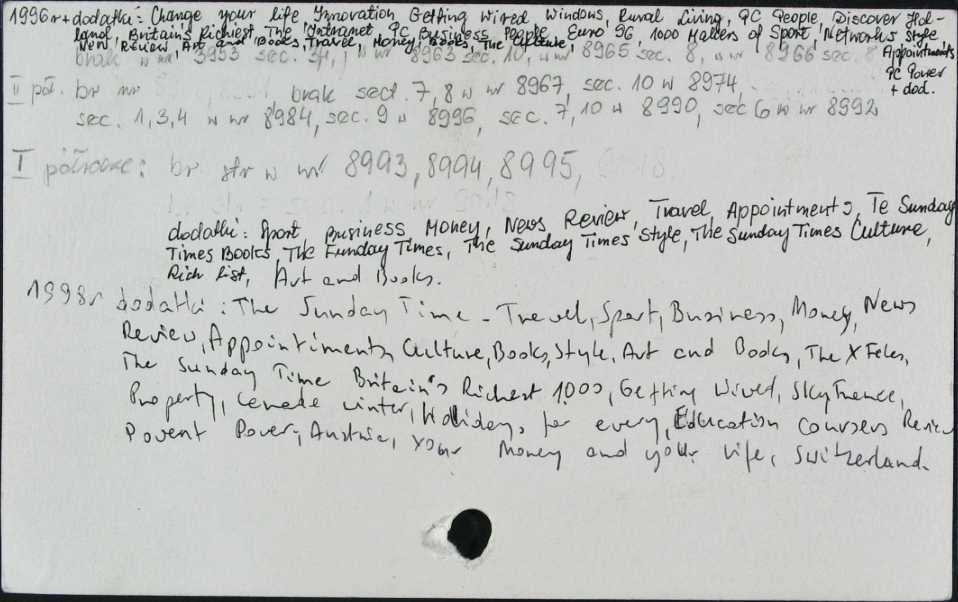 1996r + dodatki: Change your life, Innovation Getting Wired Windows, Rural Living, PC People, Discover Hol-
land, Britain's Richest, The Intranet PC Business People, Euro 96, 1000 Makers of Sport, Networks Style,
New Review, Art and Books, Travel, Money, Books, The Culture, Appointments
brak w nr 8953 sec. w nr 8963 sec. 10, w nr 8965 sec. 8, w nr 8966 sec. 8
PC Power
+ dod.
II poł. br nr brak sect. 7,8 w nr 8967, sec. 10 w 8974,
sec. 1,3,4 w nr 8984, sec. 9 w 8996, sec. 7, 10 w 8990, sec 6 w nr 8992
I półrocze: br str w nr 8993, 8994, 8995,
dodatki: Sport Business Money, News Review, Travel, Appointments, Te Sunday
Times Books, The Funday Times, The Sunday Times Style, The Sunday Times Culture,
Rich list, Art and Books.
1998r dodatki: The Sunday Time - Travel, Sport, Business, Money, News
Review, Appointiments, Culture, Books, Style, Art and Books, The X Feles,
The Sunday Time Britain's Richest 1000, Getting Wired, Sky France,
Property, Canade winter, Holidays for every, Education coursers Review
Povent Pover, Austria, Your Money and your life, Switzerland.